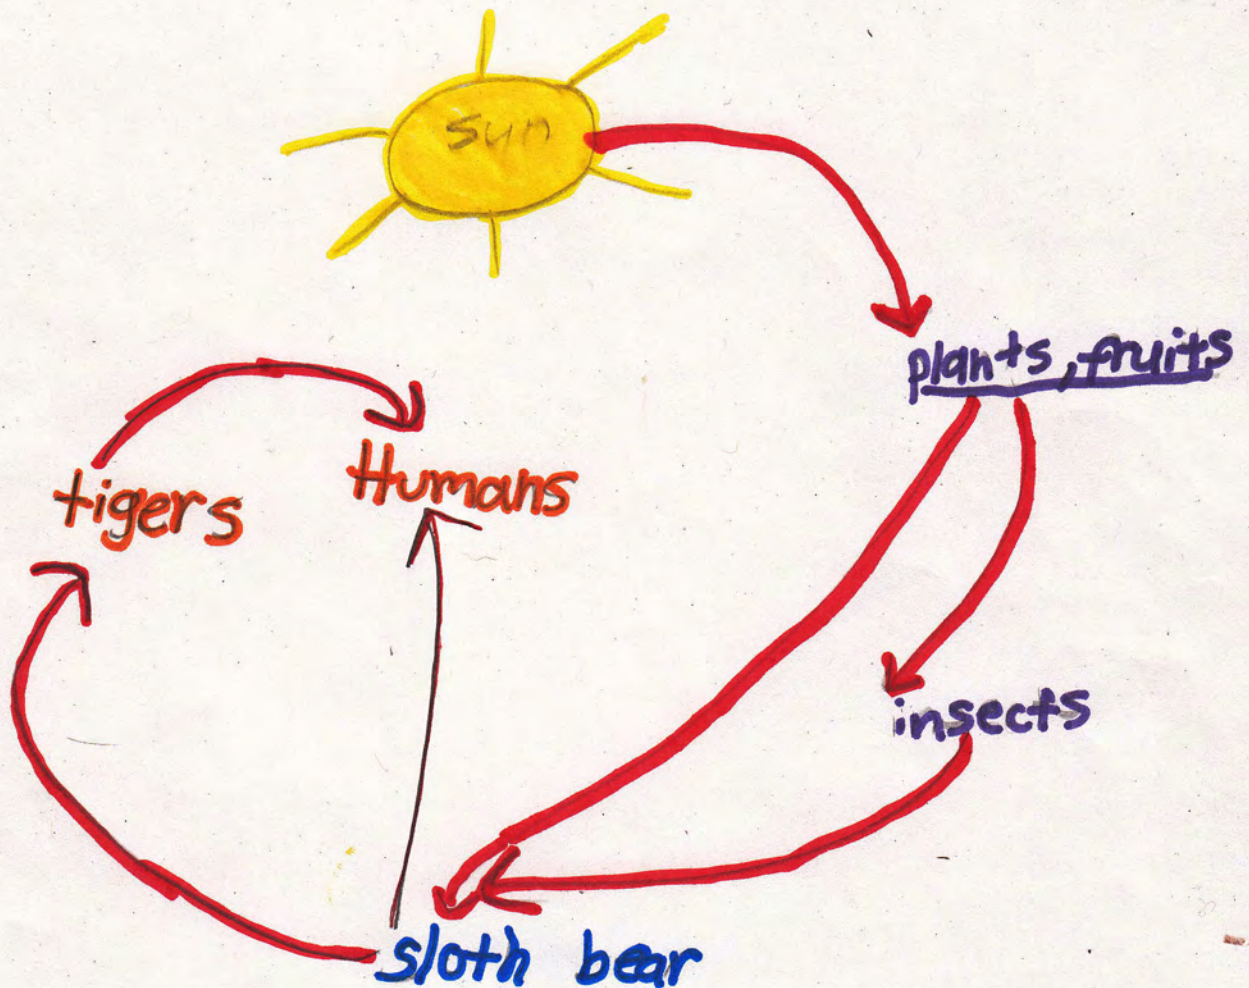 sun
plants, fruits
tigers
Humans
insects
sloth bear